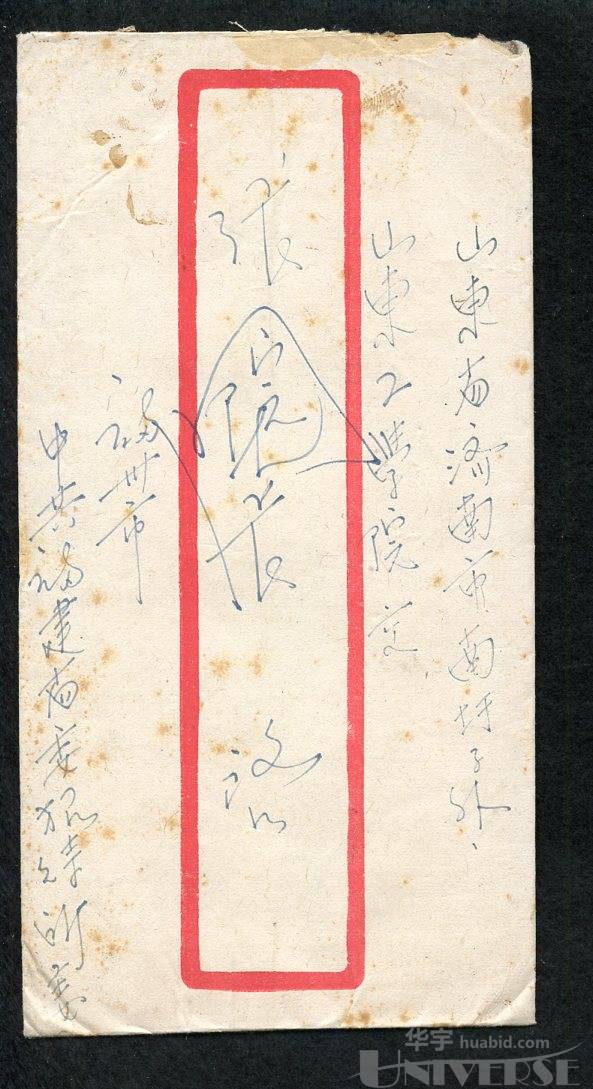 山東省济南市南圩子外、
山東工學院交
張院長
福州市
中共福建省委
华宇 huabid.com
UNIVERSE